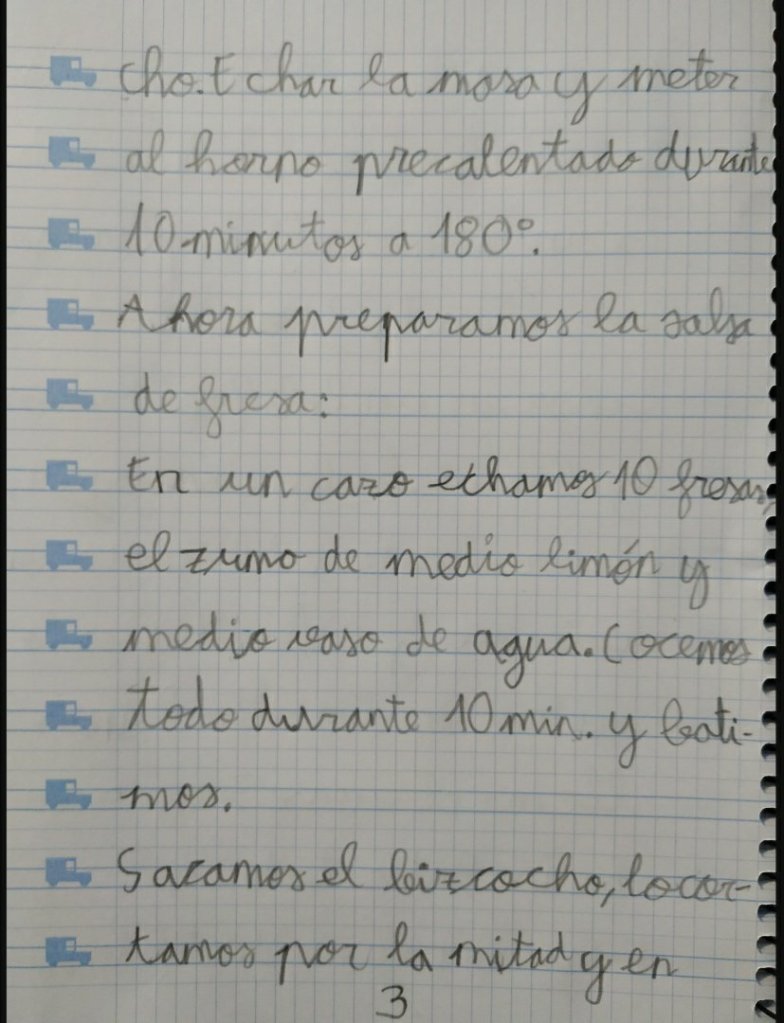 cho. Echar la masa y meter
al horno precalentado durante
10 minutos a 180º.
Ahora preparamos la salsa
de fresa:
En un cazo echamos 10 fresas,
el zumo de medio limón y
medio vaso de agua. Cocemos
todo durante 10 min. y bati-
mos.
Sacamos el bizcocho, lo cor-
tamos por la mitad y en
3